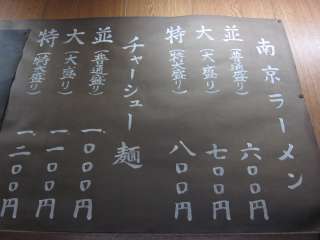 南京ラーメン
並(普通盛り) 六〇〇円
大(大盛り) 七〇〇円
特(特大盛り) 八〇〇円
チャーシュー麺
並(普通盛り) 一、〇〇〇円
大(大盛り) 一、一〇〇円
特(特大盛り) 一、二〇〇円